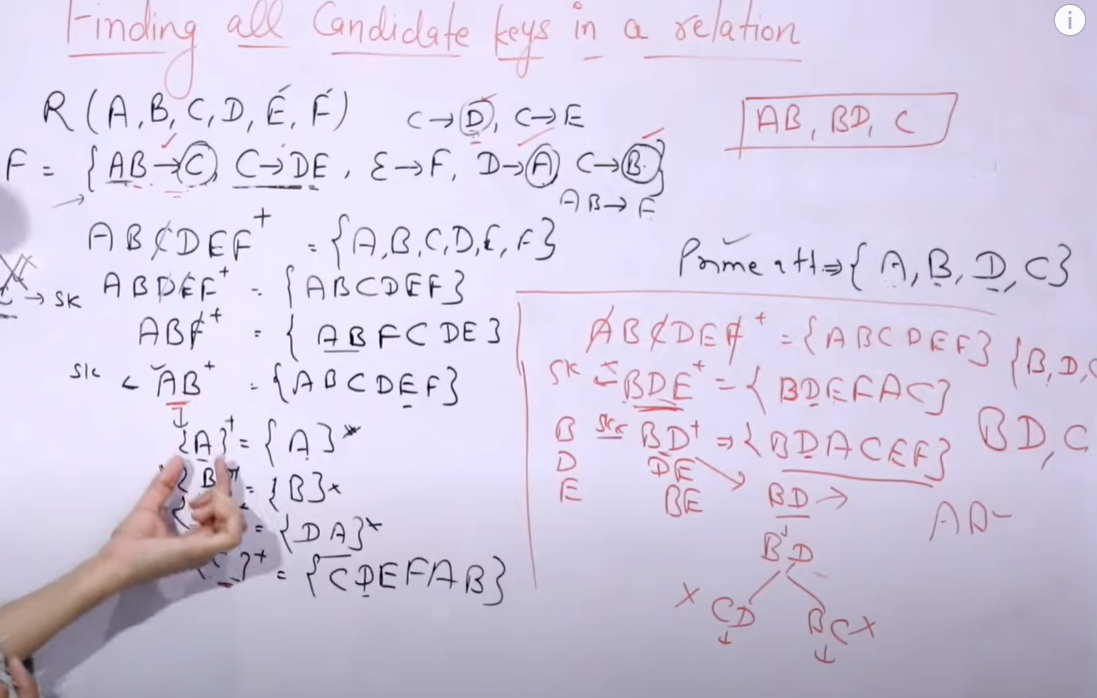 Finding all Candidate keys in a relation
R(A,B,C,D,E,F) C→D, C→E
F = {AB→C, C→DE, E→F, D→A, C→B}
AB→F
AB, BD, C
ABCDEF+ = {A,B,C,D,E,F}
→ SK ABDEF+ = {ABCDEF}
ABF+ = {ABFCDE}
SK < AB+ = {ABCDEF}
{A}+ = {A}*
{B}+ = {B}x
{ = {DA}*
}+ = {CDEFAB}
Prime att ⇒ {A,B,D,C}
ABCDEF+ = {ABCDEF} {B,D,C
SK = BDE+ = {BDEFAC}
B SK BD+ ⇒ {BDACEF} BD,C
D DE
E BE BD → AD-
BD
x CD BC x